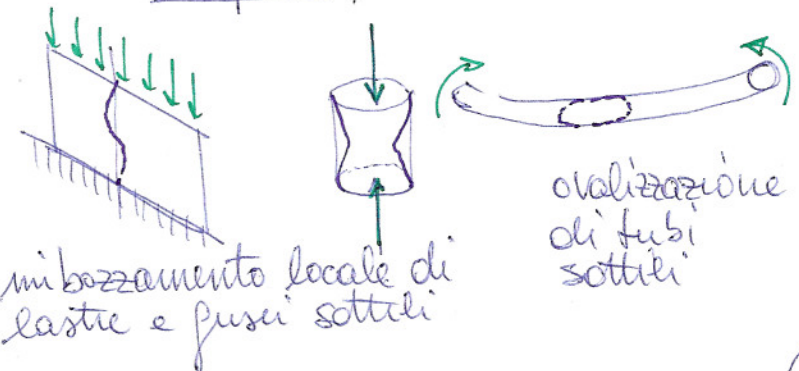 imbozzamento locale di
lastre e gusci sottili
ovalizzazione
di tubi
sottili